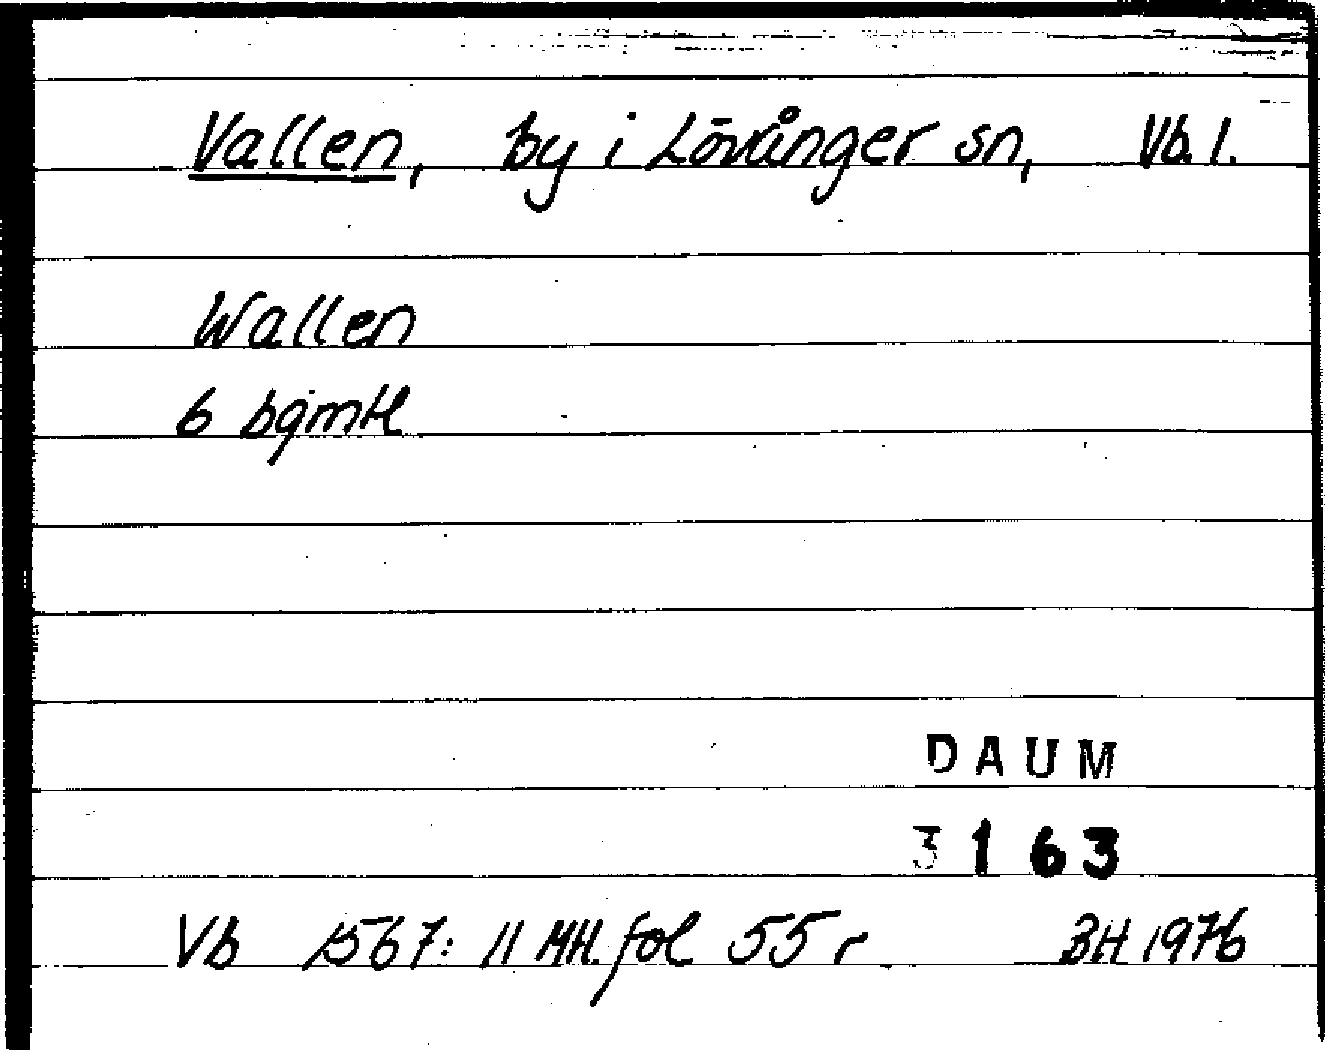 Vallen, by i Lövånger sn, Vb. l.
Wallen
6 bgmtl
DAUM
3163
Vb 1567: 11 MH. fol 55 r BH 1976